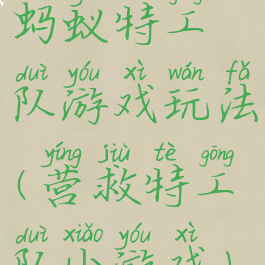 蚂蚁特工
duì yóu xì wán fǎ
队游戏玩法
yíng jiù tè gōng
(营救特工
duì xiǎo yóu xì
队小游戏)